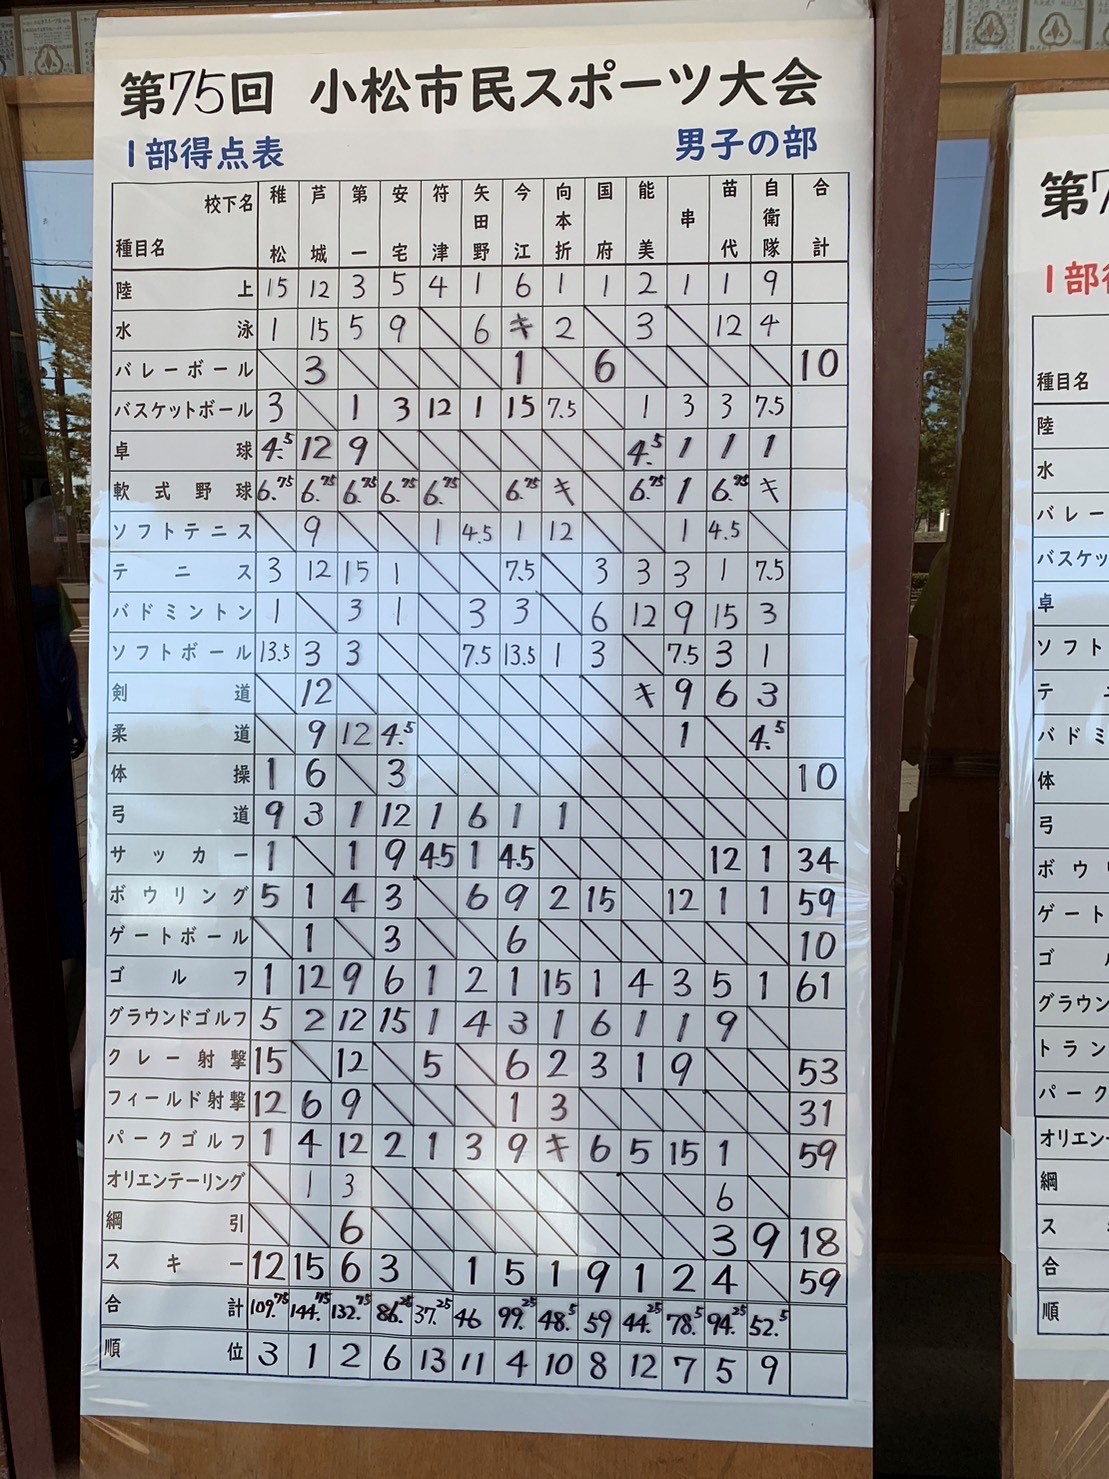 第75回 小松市民スポーツ大会
1部得点表 男子の部
校下名 種目名 稚松 芦城 第一 安宅 符津 矢田野 今江 向本折 国府 能美 串 苗代 自衛隊 合計
陸上 15 12 3 5 4 1 6 1 1 2 1 1 9
水泳 1 15 5 9 \ 6 キ 2 \ 3 \ 12 4
バレーボール \ 3 \ \ \ \ 1 \ 6 \ \ \ \ 10
バスケットボール 3 \ 1 3 12 1 15 7.5 \ 1 3 3 7.5
卓球 4.5 12 9 \ \ \ \ \ \ 4.5 1 1 1
軟式野球 6.75 6.75 6.75 6.75 6.75 \ 6.75 キ \ 6.75 1 6.75 キ
ソフトテニス \ 9 \ \ 1 4.5 1 12 \ \ 1 4.5 \
テニス 3 12 15 1 \ \ 7.5 \ 3 3 3 1 7.5
バドミントン 1 \ 3 1 \ 3 3 \ 6 12 9 15 3
ソフトボール 13.5 3 3 \ \ 7.5 13.5 1 3 \ 7.5 3 1
剣道 \ 12 \ \ \ \ \ \ \ キ 9 6 3
柔道 \ 9 12 4.5 \ \ \ \ \ \ 1 \ 4.5
体操 1 6 \ 3 \ \ \ \ \ \ \ \ \ 10
弓道 9 3 1 12 1 6 1 1 \ \ \ \ \
サッカー 1 \ 1 9 4.5 1 4.5 \ \ \ \ 12 1 34
ボウリング 5 1 4 3 \ 6 9 2 15 \ 12 1 1 59
ゲートボール \ 1 \ 3 \ \ 6 \ \ \ \ \ \ 10
ゴルフ 1 12 9 6 1 2 1 15 1 4 3 5 1 61
グラウンドゴルフ 5 2 12 15 1 4 3 1 6 1 1 9 \
クレー射撃 15 \ 12 \ 5 \ 6 2 3 1 9 \ \ 53
フィールド射撃 12 6 9 \ \ \ 1 3 \ \ \ \ \ 31
パークゴルフ 1 4 12 2 1 3 9 キ 6 5 15 1 \ 59
オリエンテーリング \ 1 3 \ \ \ \ \ \ \ \ 6 \
綱引 \ \ 6 \ \ \ \ \ \ \ \ 3 9 18
スキー 12 15 6 3 \ 1 5 1 9 1 2 4 \ 59
合計 109.75 144.75 132.75 86.25 37.25 46 99.25 48.5 59 44.25 78.5 94.25 52.5
順位 3 1 2 6 13 11 4 10 8 12 7 5 9
第7
1部
種目名
陸
水
バレー
バスケッ
卓
ソフト
テニ
バドミ
体
弓
ボウ
ゲート
ゴ
グラウン
トラン
パーク
オリエン
綱
ス
合
順